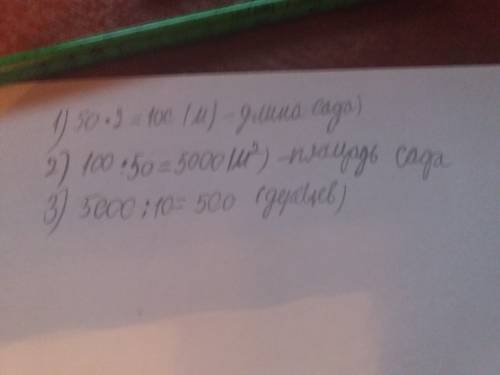 1) 50 • 2 = 100 (м) - длина сада)
2) 100 • 50 = 5000 (м²) - площадь сада
3) 5000 : 10 = 500 (деревцев)